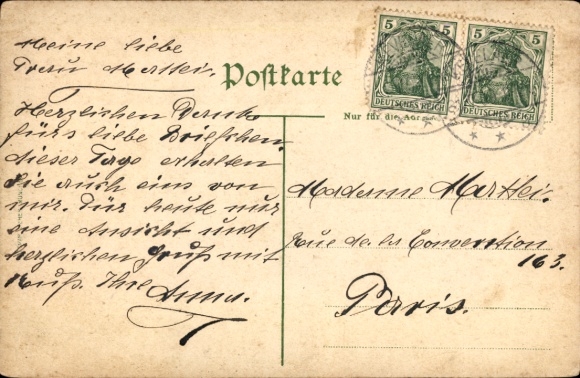 Meine liebe
Frau Matthei.
Herzlichen Dank
fürs liebe Briefchen,
dieser Tage erhalten
Sie auch eins von
mir. Für heute nur
eine Ansicht und
herzlichen Gruß mit
Kuß. Ihre
Anna.
Postkarte
Nur für die
5 5
DEUTSCHES REICH
5 5
DEUTSCHES REICH
Madame Matthei.
Rue de la Convention
163.
Paris.